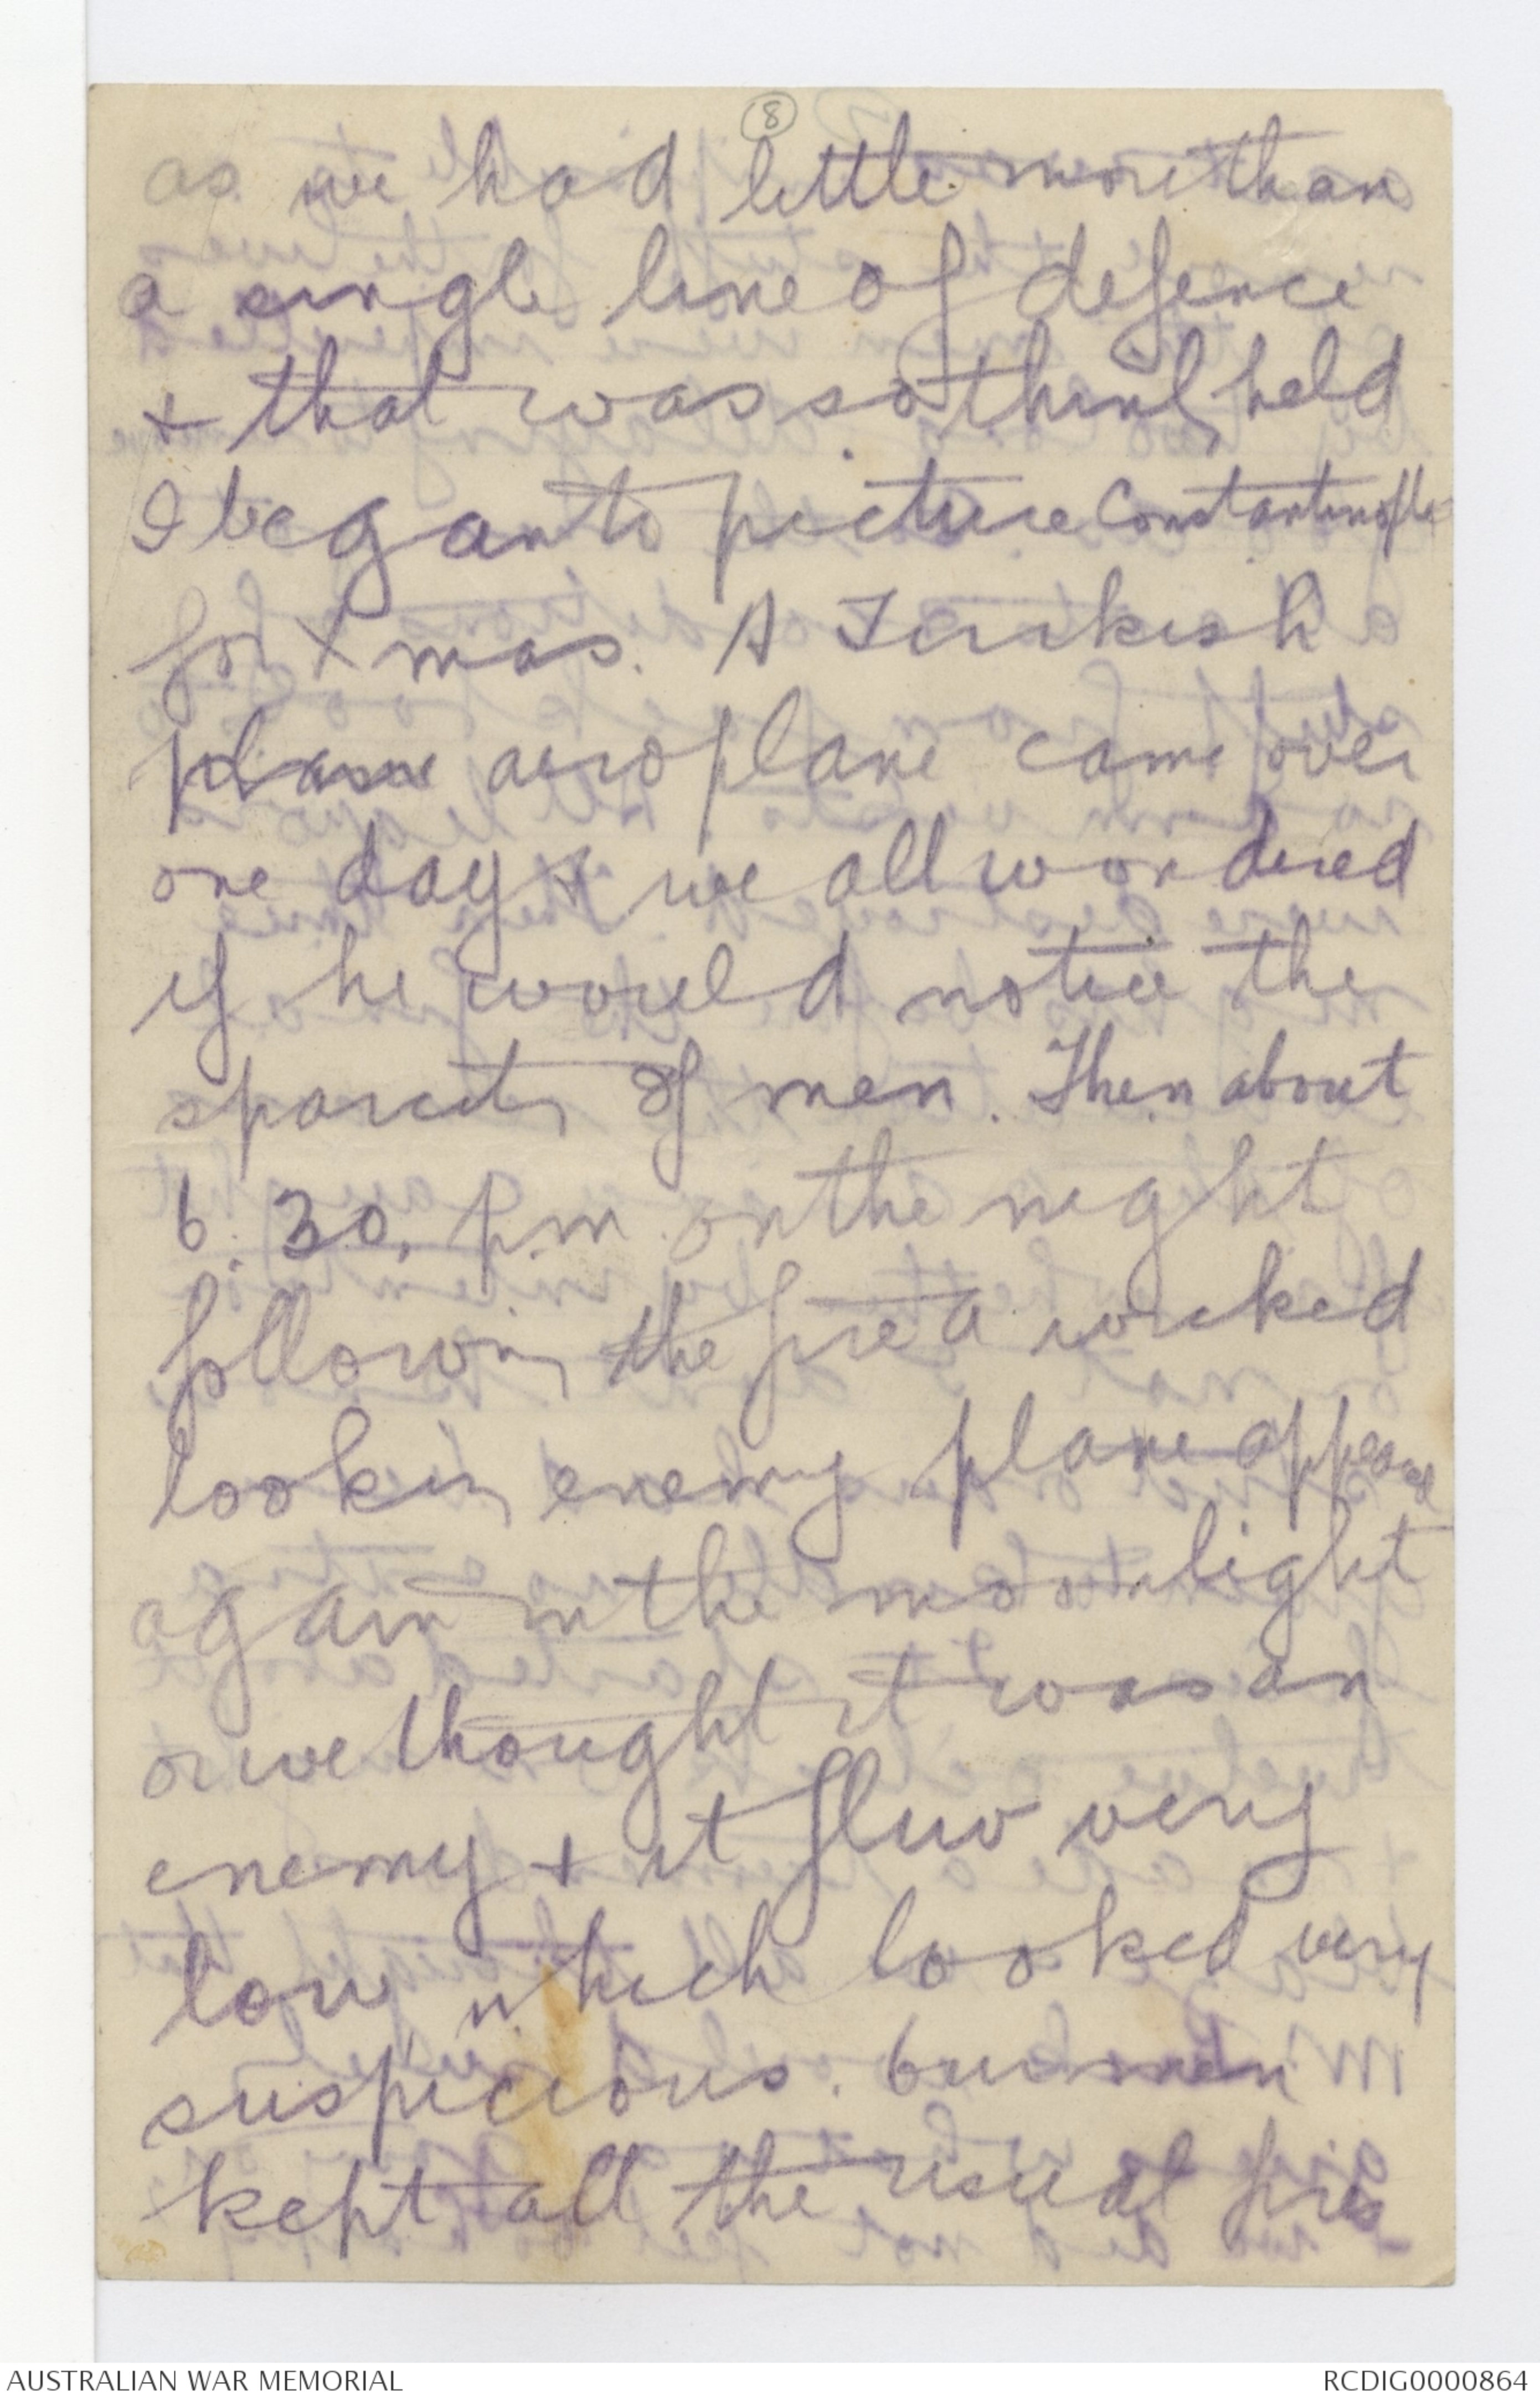 8
as we had little more than
a single line of defence
+ that was so thinly held
I began to picture Constantinople
for Xmas. A Turkish
aeroplane came over
one day & we all wondered
if he would notice the
sparcity of men. Then about
6.30. p.m. on the night
following the fire a wicked
looking enemy plane appeared
again in the moonlight
or we thought it was an
enemy + it fluw very
low, which looked very
suspicious. Our men
kept all the usual fires
AUSTRALIAN WAR MEMORIAL
RCDIG0000864